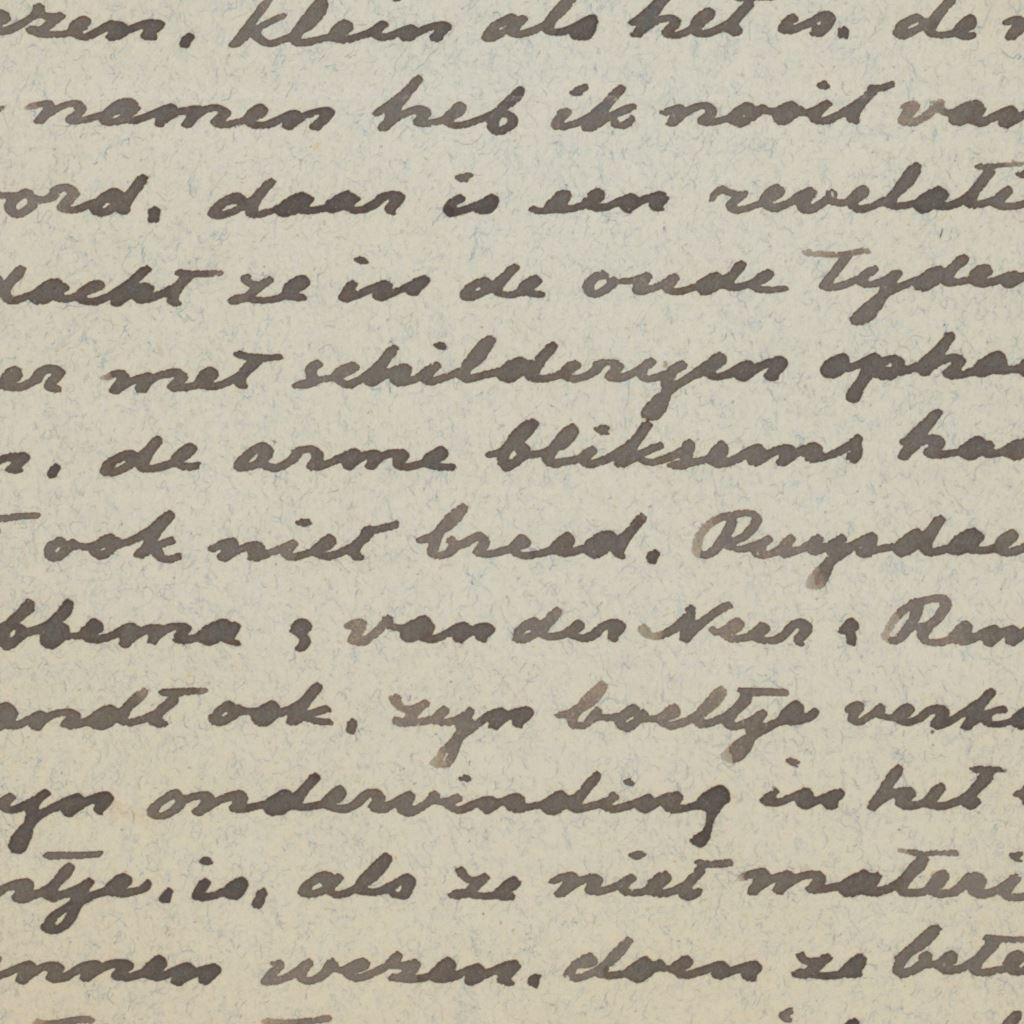 ezen. klein als het is. de
namen heb ik nooit van
oord. daar is een revelati
dacht ze in de oude tyden
er met schilderyen opha
n. de arme bliksems ha
ook niet breed. Ruysdae
bbema, van der Neer, Rem
andt ook. zyn boeltje verk
yn ondervinding in het
ntje. is, als ze niet materi
nnen wezen. doen ze bete